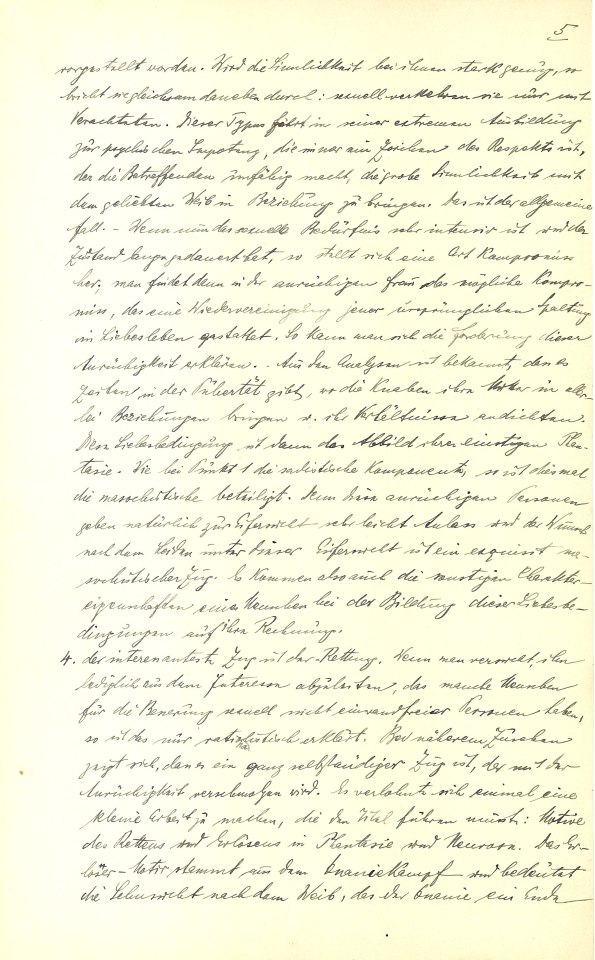 5
vorgestellt worden. Wird die Sinnlichkeit bei ihnen stark genug, so
bricht sie gleichsam daneben durch: sexuell verkehren sie nur mit
Verachteten. Dieser Typus führt in seiner extremen Ausbildung
zur psychischen Impotenz, die immer ein Zeichen des Respekts ist,
der die Betreffenden unfähig macht, die grobe Sinnlichkeit mit
dem geliebten Weib in Beziehung zu bringen. Das ist der allgemeine
Fall. – Wenn nun das sexuelle Bedürfnis sehr intensiv ist und der
Zustand lange gedauert hat, so stellt sich eine Art Kompromiss
her; man findet denn in der anrüchigen Frau das mögliche Kompro-
miss, das eine Wiedervereinigung jener ursprünglichen Spaltung
im Liebesleben gestattet. So kann man sich die Forderung dieser
Anrüchigkeit erklären. – Aus den Analysen ist bekannt, dass es
Zeiten in der Pubertät gibt, wo die Knaben ihre Mutter in aller-
lei Beziehungen bringen u. ihr Verhältnisse andichten.
Diese Liebesbedingung ist dann das Abbild ihrer einstigen Phan-
tasie. Wie bei Punkt 1 die sadistische Komponente, so ist diesmal
die masochistische beteiligt. Denn diese anrüchigen Personen
geben natürlich zur Eifersucht sehr leicht Anlass und der Wunsch
nach dem Leiden unter dieser Eifersucht ist ein exquisit ma-
sochistischer Zug. Es kommen also auch die sonstigen Charakter-
eigenschaften eines Menschen bei der Bildung dieser Liebesbe-
dingungen auf ihre Rechnung.
4. der interessanteste Zug ist der Rettung. Wenn man versucht, ihn
lediglich aus dem Interesse abzuleiten, das manche Menschen
für die Besserung sexuell nicht einwandfreier Personen haben,
so ist das nur rationalistisch erklärt. Bei näherem Zusehen
zeigt sich, dass es ein ganz selbständiger Zug ist, der mit der
Anrüchigkeit verschmolzen wird. Es verlohnte sich einmal eine
kleine Arbeit zu machen, die den Titel führen müsste: Motive
des Rettens und Erlösens in Phantasie und Neurose. Das Er-
löser-Motiv stammt aus dem Onaniekampf und bedeutet
die Sehnsucht nach dem Weib, das der Onanie ein Ende